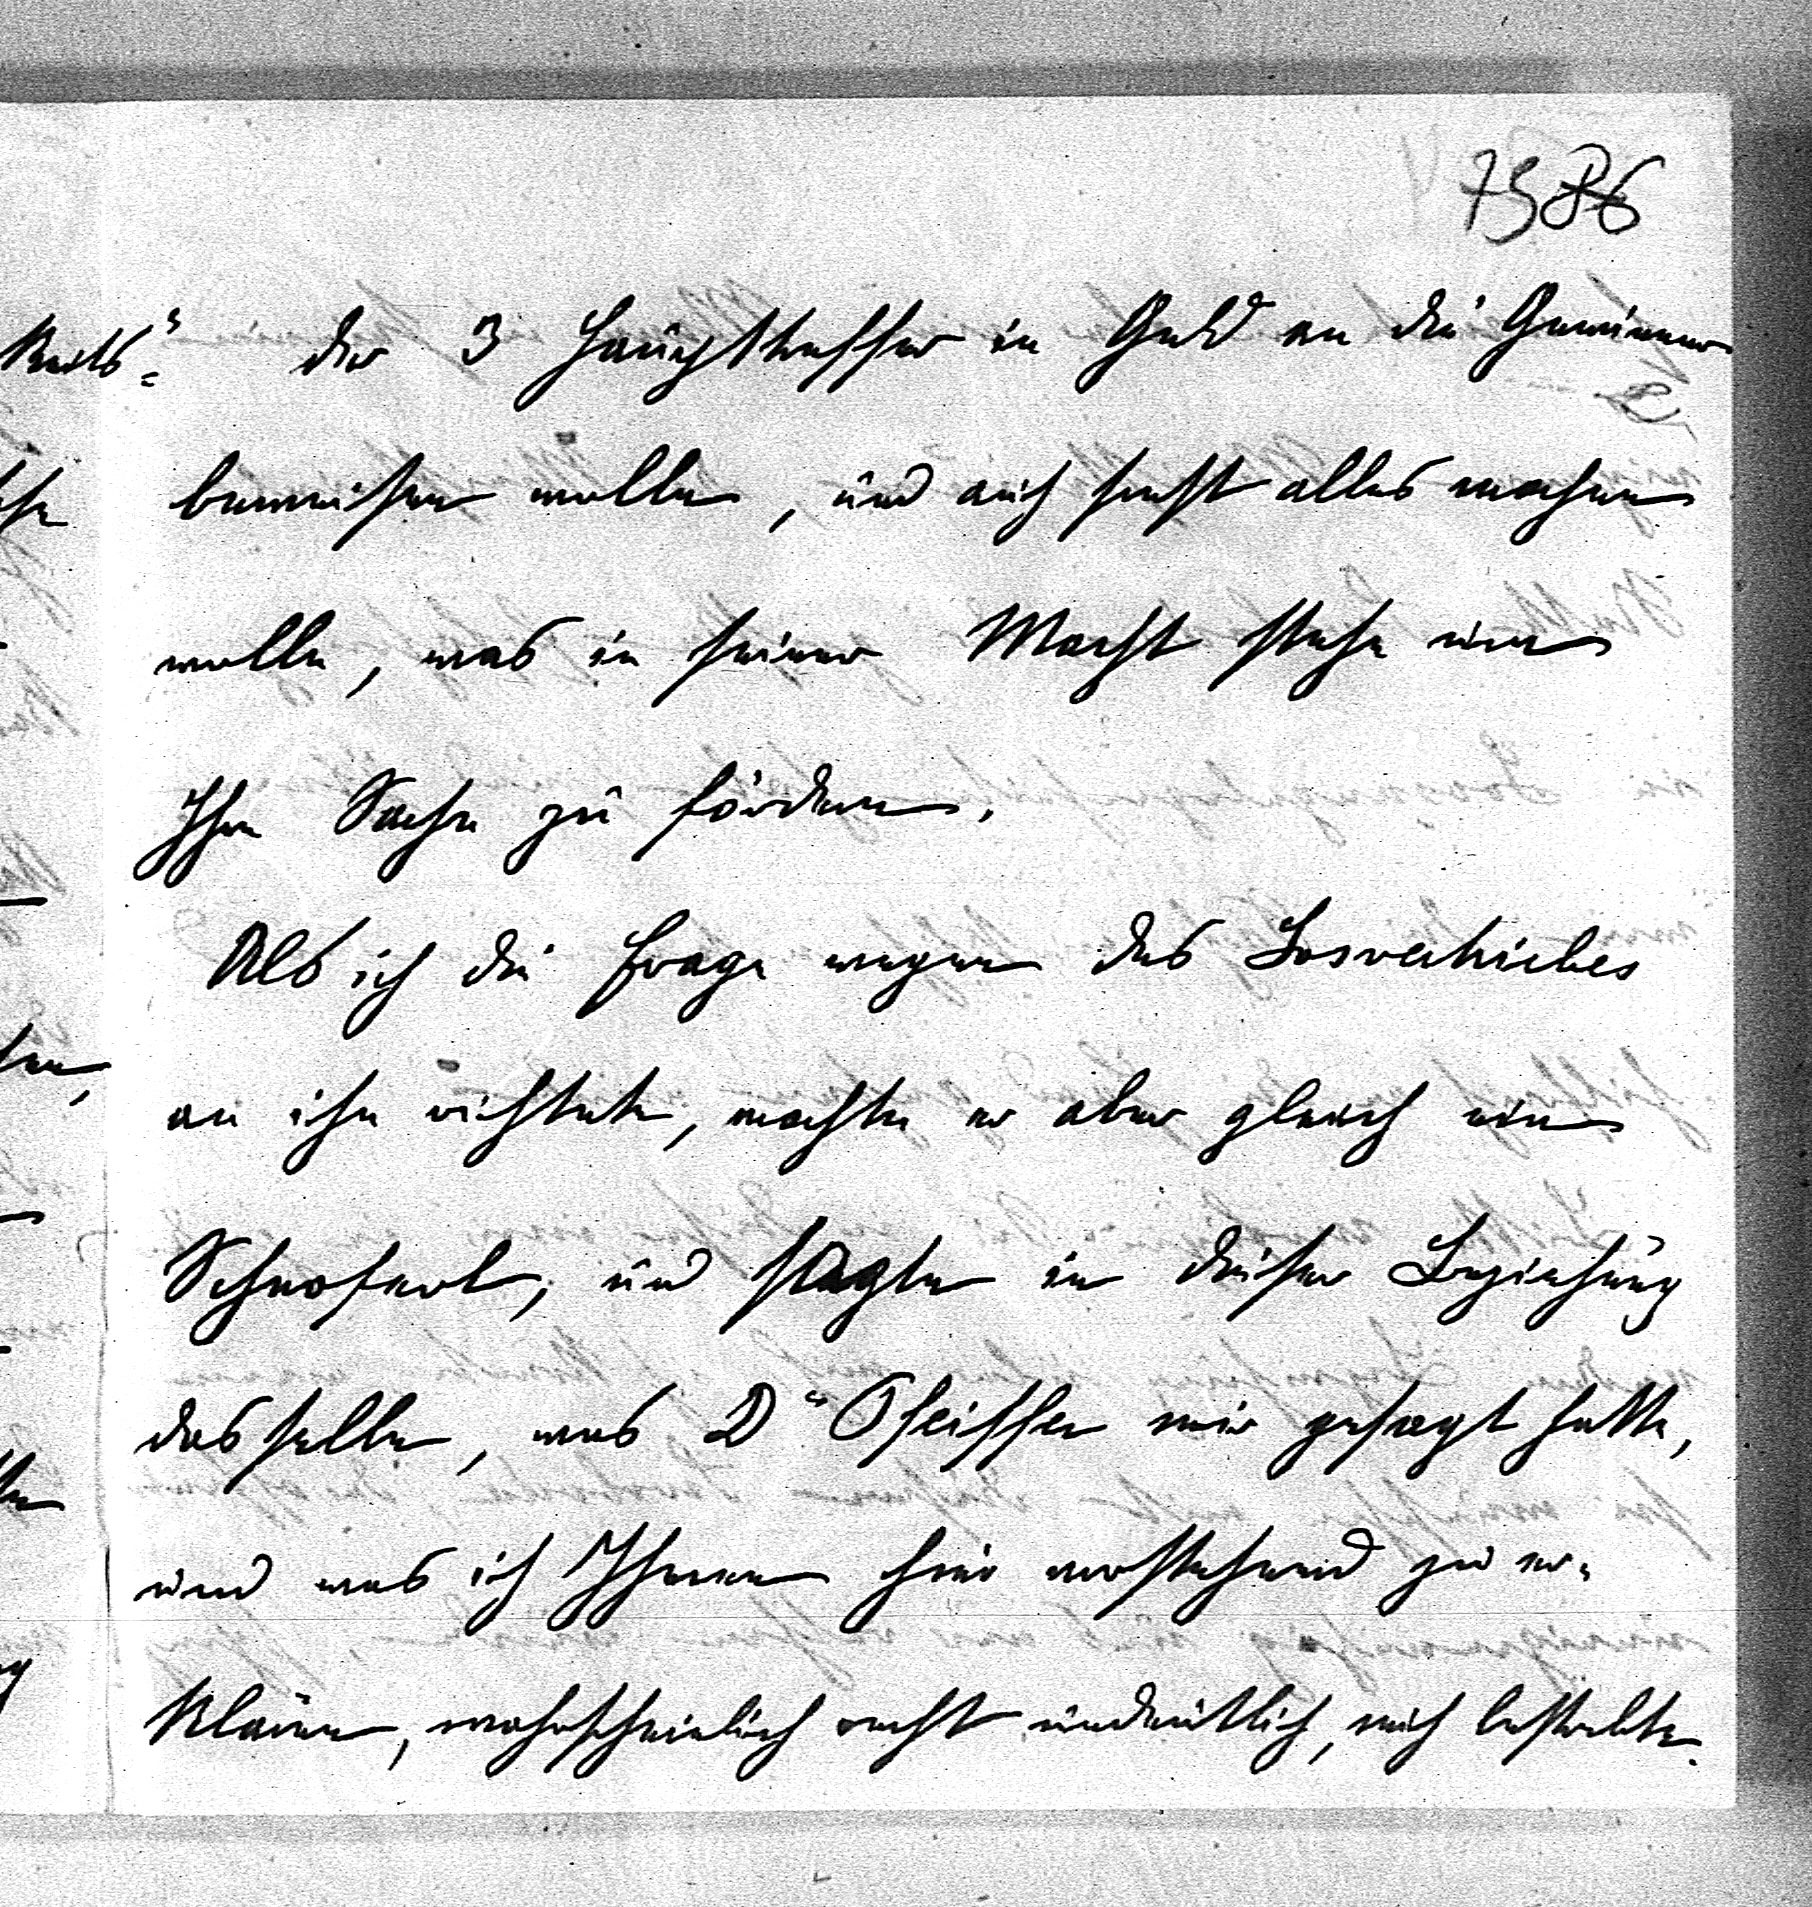 75 86
der 3 Haupttreffer in Geld an die Gewinner
wolle, und auch sonst alles machen
wolle, was in seiner Macht stehe um
Ihre Sache zu fördern.
Als ich die Frage wegen des Losvertriebes
an ihn richtete, machte er aber gleich ein
Schnoferl, und sagte in dieser Beziehung
dasselbe, was Dr Pfeiffer mir gesagt hatte,
und was ich Ihnen hier vorstehend zu er-
klären, wahrscheinlich recht undeutlich, mich bestrebte.